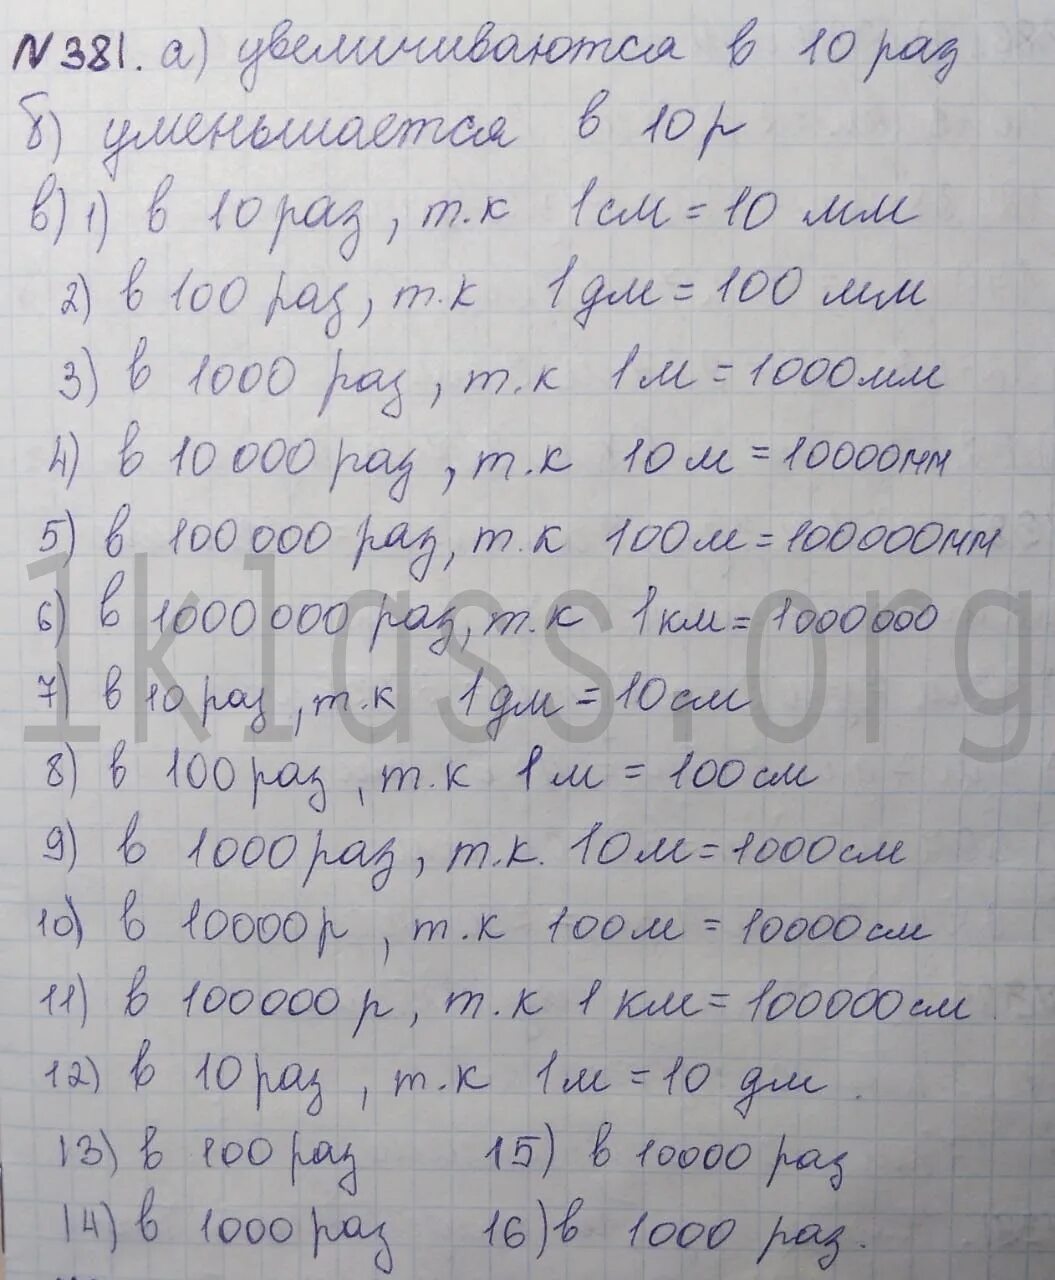 №381. а) увеличиваются в 10 раз
б) уменьшается в 10р
в) 1) в 10 раз, т.к 1см = 10 мм
2) в 100 раз, т.к 1дм = 100 мм
3) в 1000 раз, т.к 1м = 1000мм
4) в 10 000 раз, т.к 10м = 10000мм
5) в 100 000 раз, т.к 100м = 100000мм
6) в 1000 000 раз, т.к 1км = 1000000
7) в 10 раз, т.к 1дм = 10см
8) в 100 раз, т.к 1м = 100см
9) в 1000 раз, т.к. 10м = 1000см
10) в 10000р, т.к 100м = 10000см
11) в 100000 р, т.к 1 км = 100000см
12) в 10 раз, т.к 1м = 10 дм.
13) в 100 раз 15) в 10000 раз
14) в 1000 раз 16) в 1000 раз.
1klass.org